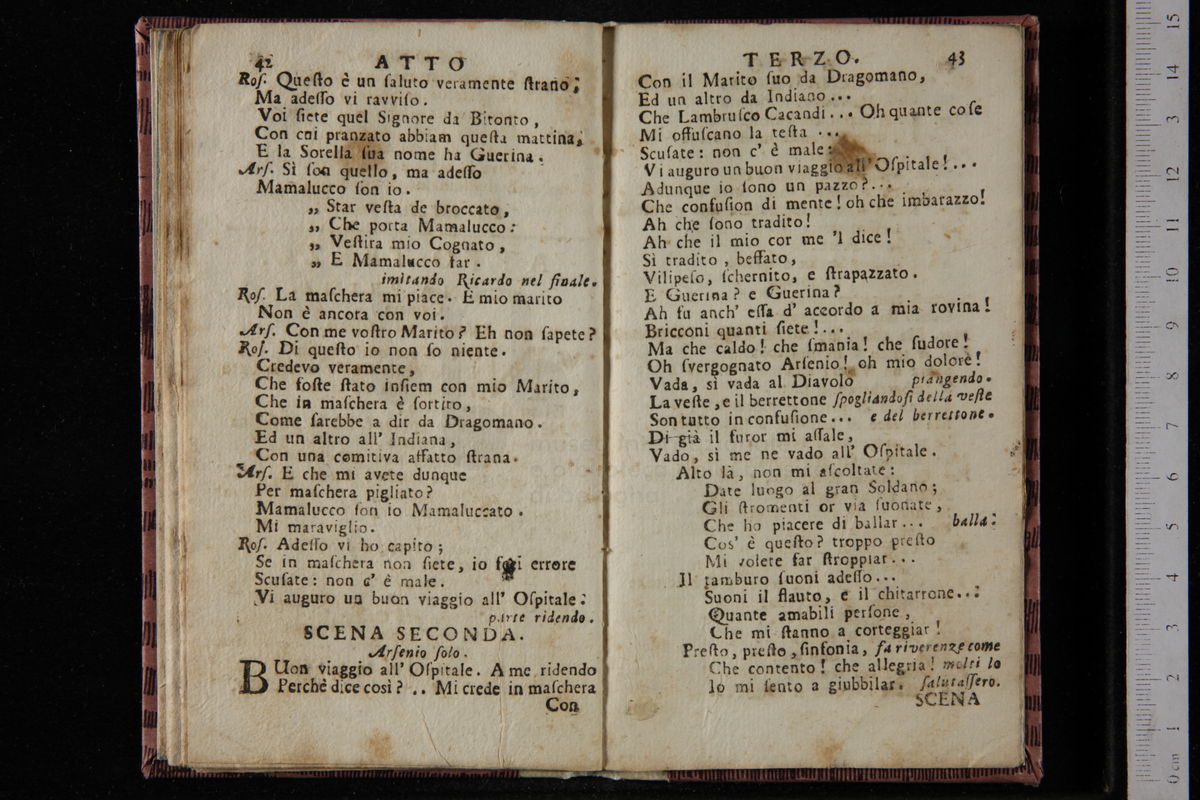 42 ATTO
Roſ. Queſto è un ſaluto veramente ſtrano;
Ma adeſſo vi ravviſo.
Voi ſiete quel Signore da Bitonto,
Con cui pranzato abbiam queſta mattina,
E la Sorella ſua nome ha Guerina.
Arſ. Sì ſon quello, ma adeſſo
Mamalucco ſon io.
„ Star veſta de broccato,
„ Che porta Mamalucco:
„ Veſtira mio Cognato,
„ E Mamalucco far.
imitando Ricardo nel finale.
Roſ. La maſchera mi piace. E mio marito
Non è ancora con voi.
Arſ. Con me voſtro Marito? Eh non ſapete?
Roſ. Di queſto io non ſo niente.
Credevo veramente,
Che foſte ſtato inſiem con mio Marito,
Che in maſchera è ſortito,
Come ſarebbe a dir da Dragomano.
Ed un altro all' Indiana,
Con una comitiva affatto ſtrana.
Arſ. E che mi avete dunque
Per maſchera pigliato?
Mamalucco ſon io Mamaluccato.
Mi maraviglio.
Roſ. Adeſſo vi ho capito;
Se in maſchera non ſiete, io fei errore
Scuſate: non c' è male.
Vi auguro un buon viaggio all' Oſpitale.
parte ridendo.
SCENA SECONDA.
Arſenio ſolo.
BUon viaggio all' Oſpitale. A me ridendo
Perchè dice così? .. Mi crede in maſchera
Con
TERZO. 43
Con il Marito ſuo da Dragomano,
Ed un altro da Indiano...
Che Lambruſco Cacandi... Oh quante coſe
Mi offuſcano la teſta ...
Scuſate: non c' è male:
Vi auguro un buon viaggio all' Oſpitale!...
Adunque io ſono un pazzo?...
Che confuſion di mente! oh che imbarazzo!
Ah che ſono tradito!
Ah che il mio cor me 'l dice!
Sì tradito, beffato,
Vilipeſo, ſchernito, e ſtrapazzato.
E Guerina? e Guerina?
Ah fu anch' eſſa d' accordo a mia rovina!
Bricconi quanti ſiete!...
Ma che caldo! che ſmania! che ſudore!
Oh ſvergognato Arſenio! oh mio dolore!
Vada, sì vada al Diavolo piangendo.
La veſte, e il berrettone ſpogliandoſi della veſte
Son tutto in confuſione... e del berrettone.
Di già il furor mi aſſale,
Vado, sì me ne vado all' Oſpitale.
Alto là, non mi aſcoltate:
Date luogo al gran Soldano;
Gli ſtromenti or via ſuonate,
Che ho piacere di ballar... balla.
Cos' è queſto? troppo preſto
Mi volete far ſtroppiar...
Il tamburo ſuoni adeſſo...
Suoni il flauto, e il chitarrone...
Quante amabili perſone,
Che mi ſtanno a corteggiar!
Preſto, preſto, ſinfonia, fa riverenze come
Che contento! che allegria! molti lo
Io mi ſento a giubbilar. ſalutaſſero.
SCENA